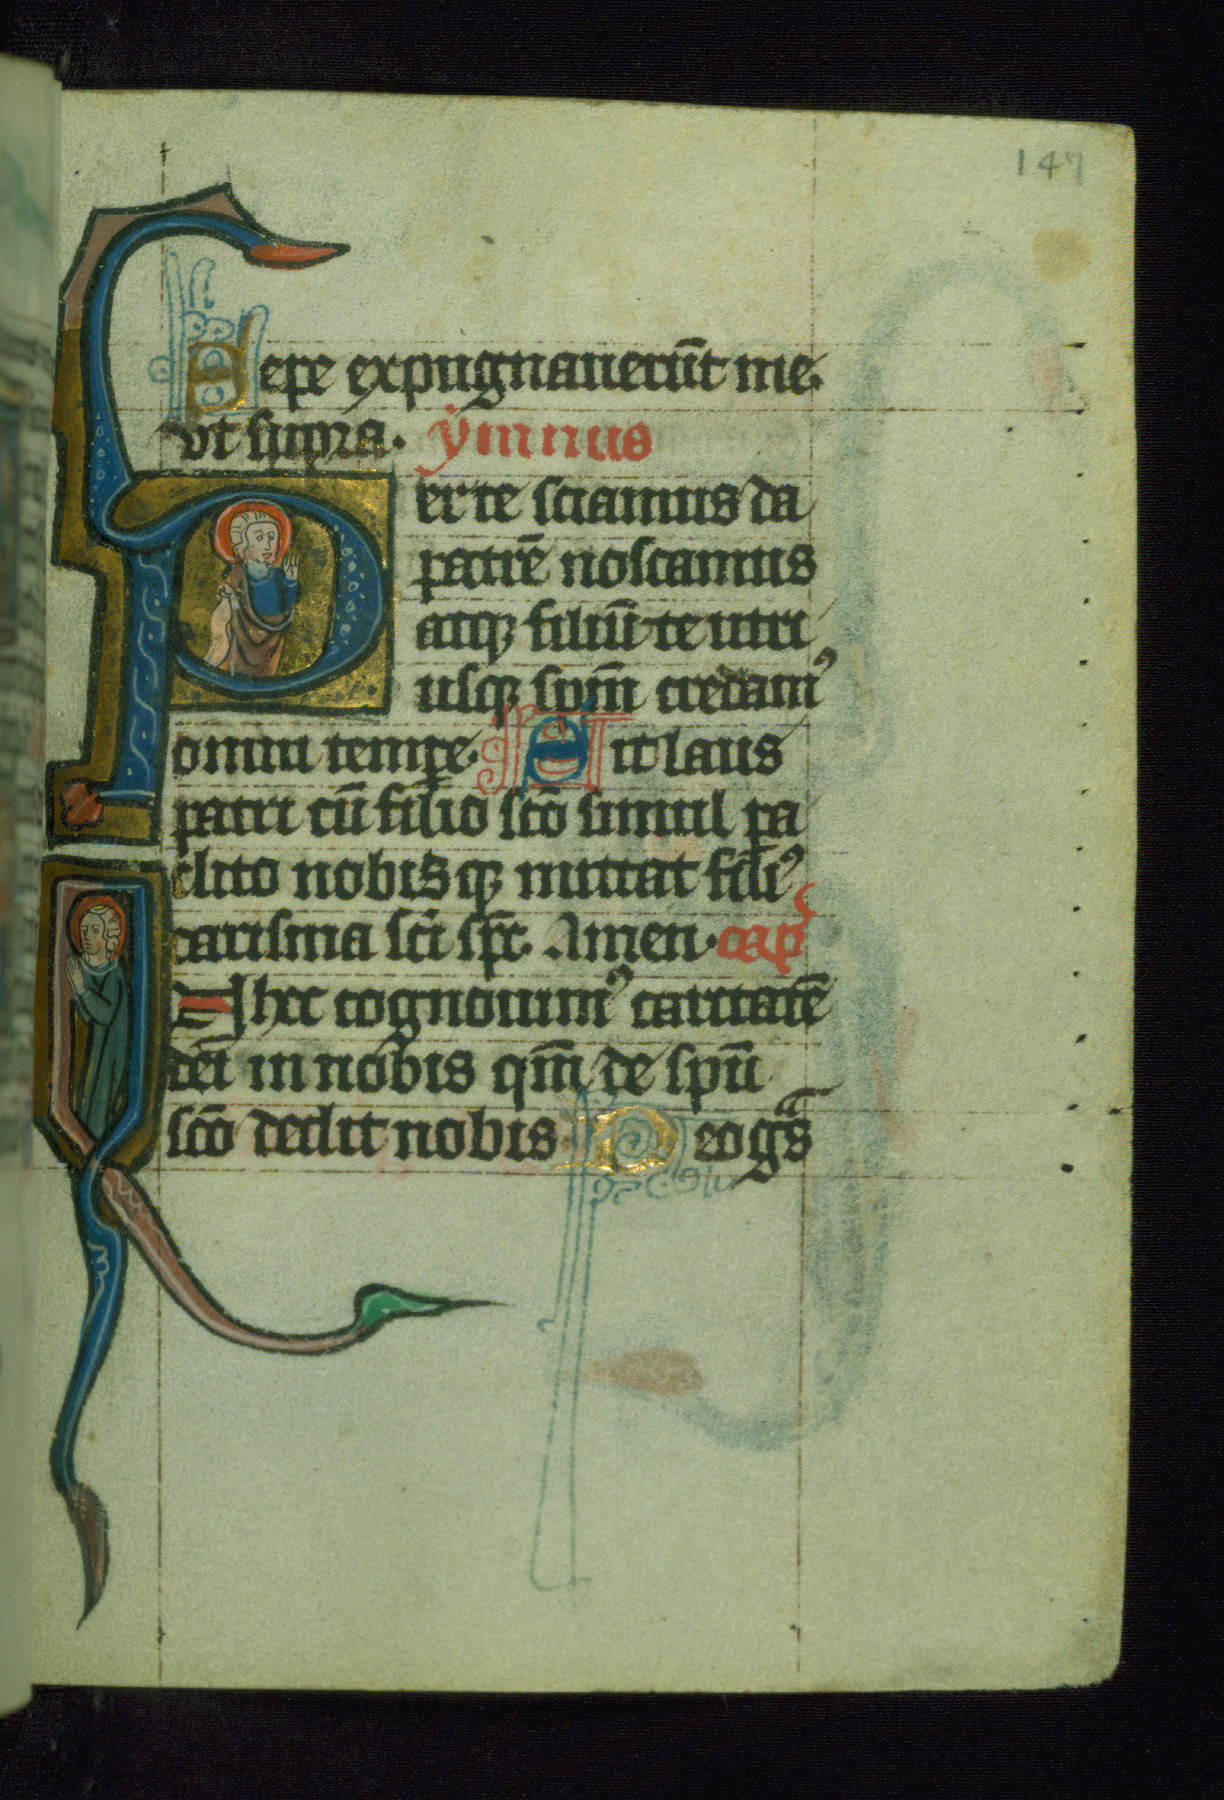 147
Sepe expugnauerūt me.
vt supra. ẏmnus
Per te sciamus da
patrē noscamus
atq; filiū te utri
usq; spm̄ credam⁹
omni tempr̄e. Sit laus
patri cū filio sc̄o simul pa
clito nobisq; mittat fili⁹
carisma sc̄i sp̄c. Amen. cap̄
In hec cognouim⁹ caritatē
dei in nobis qm̄ de spū
sc̄o dedit nobis Deo gr̄s